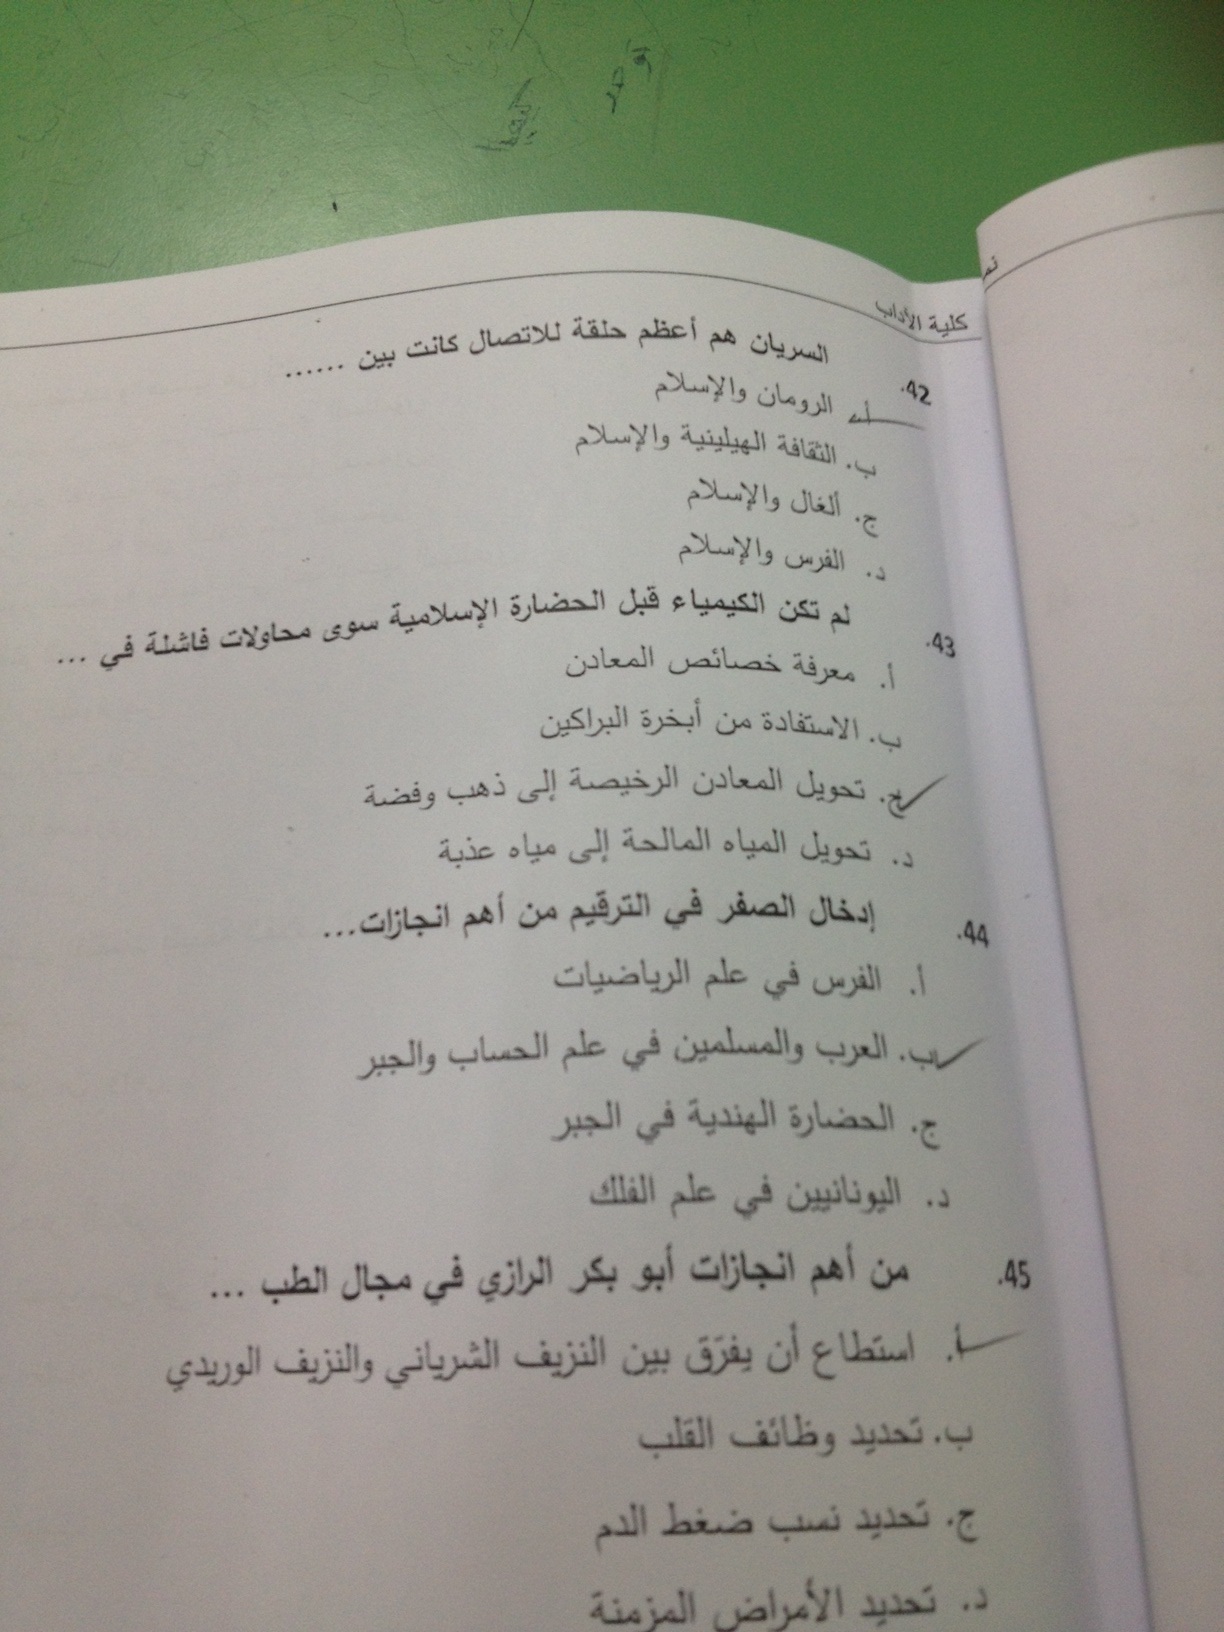 كلية الآداب
42. السريان هم أعظم حلقة للاتصال كانت بين ......
أ. الرومان والإسلام
ب. الثقافة الهيلينية والإسلام
ج. ألغال والإسلام
د. الفرس والإسلام
43. لم تكن الكيمياء قبل الحضارة الإسلامية سوى محاولات فاشلة في ...
أ. معرفة خصائص المعادن
ب. الاستفادة من أبخرة البراكين
ج. تحويل المعادن الرخيصة إلى ذهب وفضة
د. تحويل المياه المالحة إلى مياه عذبة
44. إدخال الصفر في الترقيم من أهم انجازات...
أ. الفرس في علم الرياضيات
ب. العرب والمسلمين في علم الحساب والجبر
ج. الحضارة الهندية في الجبر
د. اليونانيين في علم الفلك
45. من أهم انجازات أبو بكر الرازي في مجال الطب ...
أ. استطاع أن يفرّق بين النزيف الشرياني والنزيف الوريدي
ب. تحديد وظائف القلب
ج. تحديد نسب ضغط الدم
د. تحديد الأمراض المزمنة